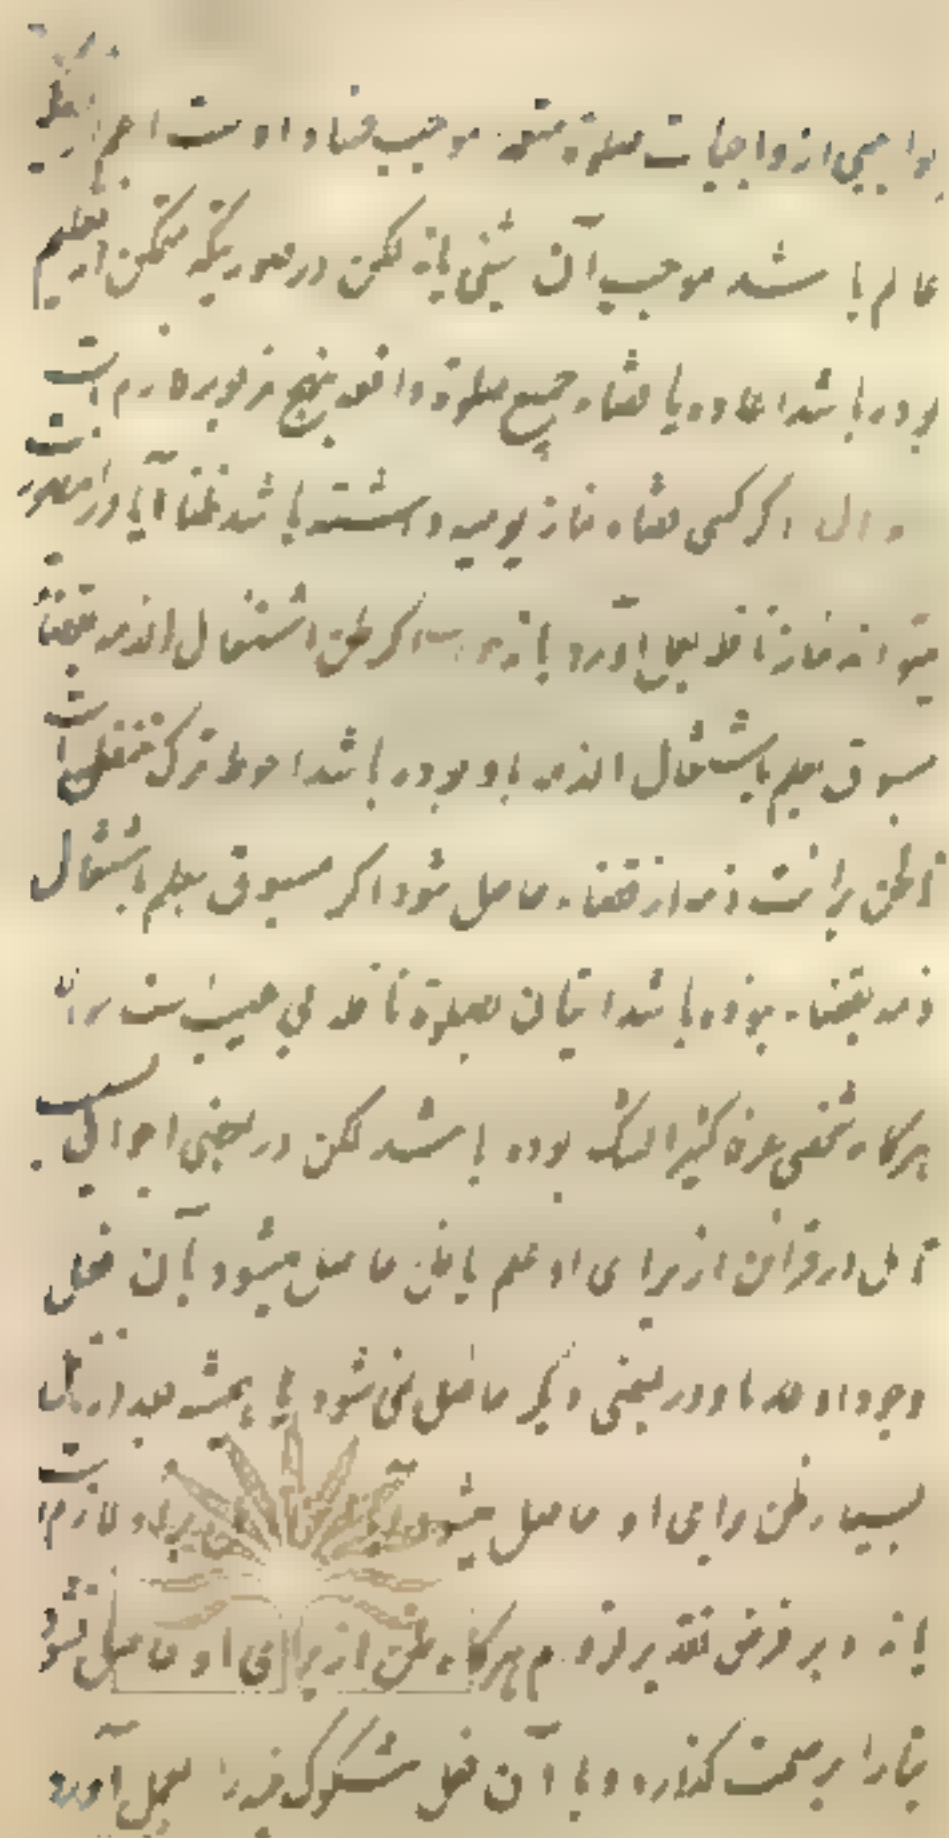 واجبی از واجبات صلوة موجب فساد او است
عالم باشد موجب آن شئی یا نه لکن در صورتیکه ممکن از تعلیم
بوده باشد اعاده یا قضاء جمیع صلوة واقعه بنهج مزبور لازم است
اگر کسی قضاء نماز یومیه داشته باشد ظنا آیا در این صورت
میتواند نماز نافله بعمل آورد یا نه اگر ظن اشتغال الذمه بقضاء
مسبوق بعلم باشتغال الذمه باو بوده باشد احوط ترک تنفل است
تا ظن برائت ذمه از قضاء حاصل شود اگر مسبوق بعلم باشتغال
ذمه بقضاء نبوده باشد اتیان بصلوة نافله بی عیب است
هرگاه شخصی عرفا کثیر الشک بوده باشد لکن در بعضی احوال
تأمل در قرائن از برای او علم یا ظن حاصل میشود بآن فعل
وجودا و عدما و در بعضی دیگر حاصل نمی شود یا همیشه بعد از تأمل
بسیار ظن برای او حاصل میشود لازم است
یا نه و بر فرض تقدیر لزوم هرگاه ظن از برای او حاصل نشود
بنا را بر صحت گذارد و یا آن فعل مشکوک فیه را بعمل آورد